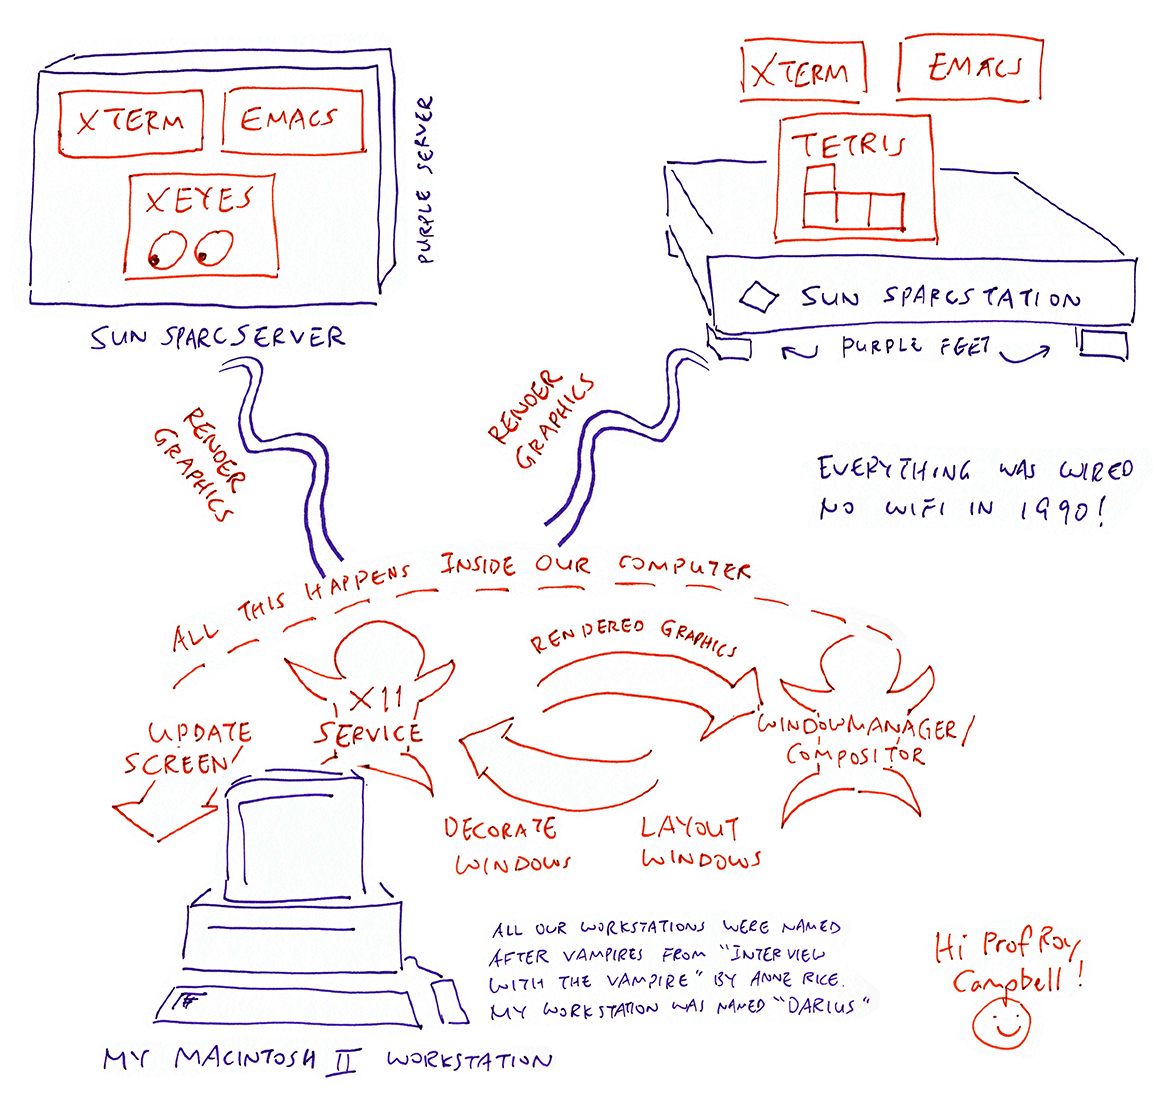 XTERM
EMACS
XEYES
PURPLE SERVER
SUN SPARCSERVER
XTERM
EMACS
TETRIS
SUN SPARCSTATION
PURPLE FEET
RENDER
GRAPHICS
RENDER
GRAPHICS
EVERYTHING WAS WIRED
NO WIFI IN 1990!
ALL THIS HAPPENS INSIDE OUR COMPUTER
UPDATE
SCREEN/
X11
SERVICE
RENDERED GRAPHICS
WINDOWMANAGER/
COMPOSITOR
DECORATE
WINDOWS
LAYOUT
WINDOWS
ALL OUR WORKSTATIONS WERE NAMED
AFTER VAMPIRES FROM "INTERVIEW
WITH THE VAMPIRE" BY ANNE RICE.
MY WORKSTATION WAS NAMED "DARIUS"
Hi Prof Roy
Campbell!
MY MACINTOSH II WORKSTATION